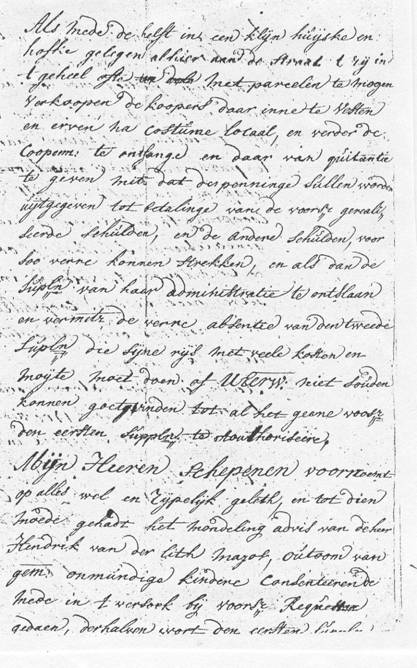 Als mede de helft in een klyn huijske en
hofke gelegen alhier aan de straat t zy in
t geheel ofte met parceelen te mogen
verkoopen de koopers daar inne te vesten
en erven na costume locaal, en verder de
Cooppenn: te ontfange en daar van quitantie
te geven mits dat de penninge sullen worde
uijtgegeven tot betalinge van de voorsz:
seerde schulden, en de andere schulden voor
soo verre konnen strekken, en als dan de
Supln van haar administratie te ontslaan
en vermits de verre absentie van den tweede
Supln die syne rys met veele kosten en
moyte moet doen of UEerw. niet souden
konnen goetvinden tot al het geene voorsz
den eersten Suppln te authoriseere,
Mijn Heeren Schepenen voornoemt
op alles wel en rypelijk gelet, en tot dien
gehadt het mondeling advis van de heer
Hendrik van der Lith outoom van
gem: onmundige kindere Consenteren de
mede in t versoek bij voorsz: Requeste
gedaen, derhalven wort den eersten